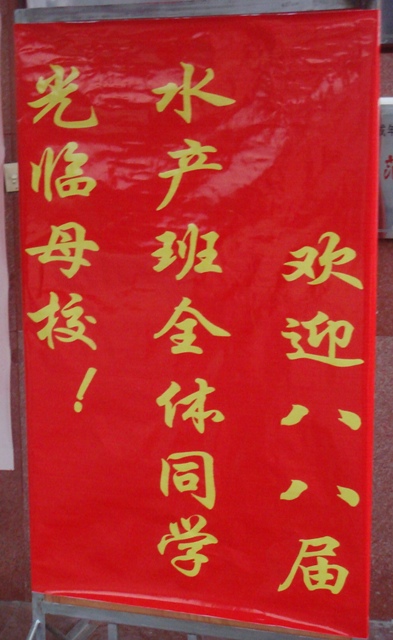 欢迎八八届
水产班全体同学
光临母校！